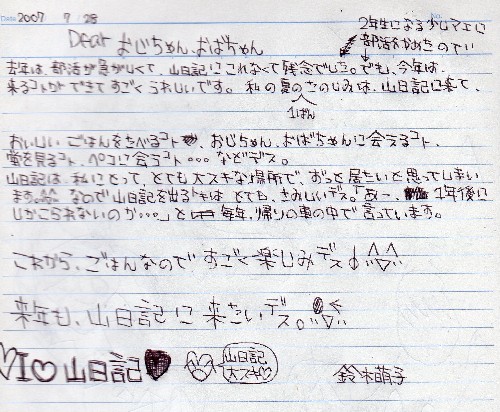 Date 2007 7 28
2年生になる少しマエに
部活をかあきのでい
Dear おじちゃん、おばちゃん
去年は、部活が急がしくて、山日記にこれなくて残念でした。でも、今年は、
来るコトができてすごくうれしいです。私の夏のさのしみは、山日記に来て、
1ばん
おいしいごはんをたべるコト、おじちゃん、おばちゃんに会うコト、
蛍を見るコト、ペコに会うコト・・・などデス。
山日記は、私にとって、とても大スキな場所で、ずっと居たいと思ってしまい
ます。なので山日記を出るトキは、とても、さみしいデス。「あー、1年後に
しかこられないのか・・・。」と毎年、帰りの車の中で言っています。
これから、ごはんなのですごく楽しみデス
来年も、山日記に来たいデス。
I♡山日記
山日記
大スキ
鈴木萌子